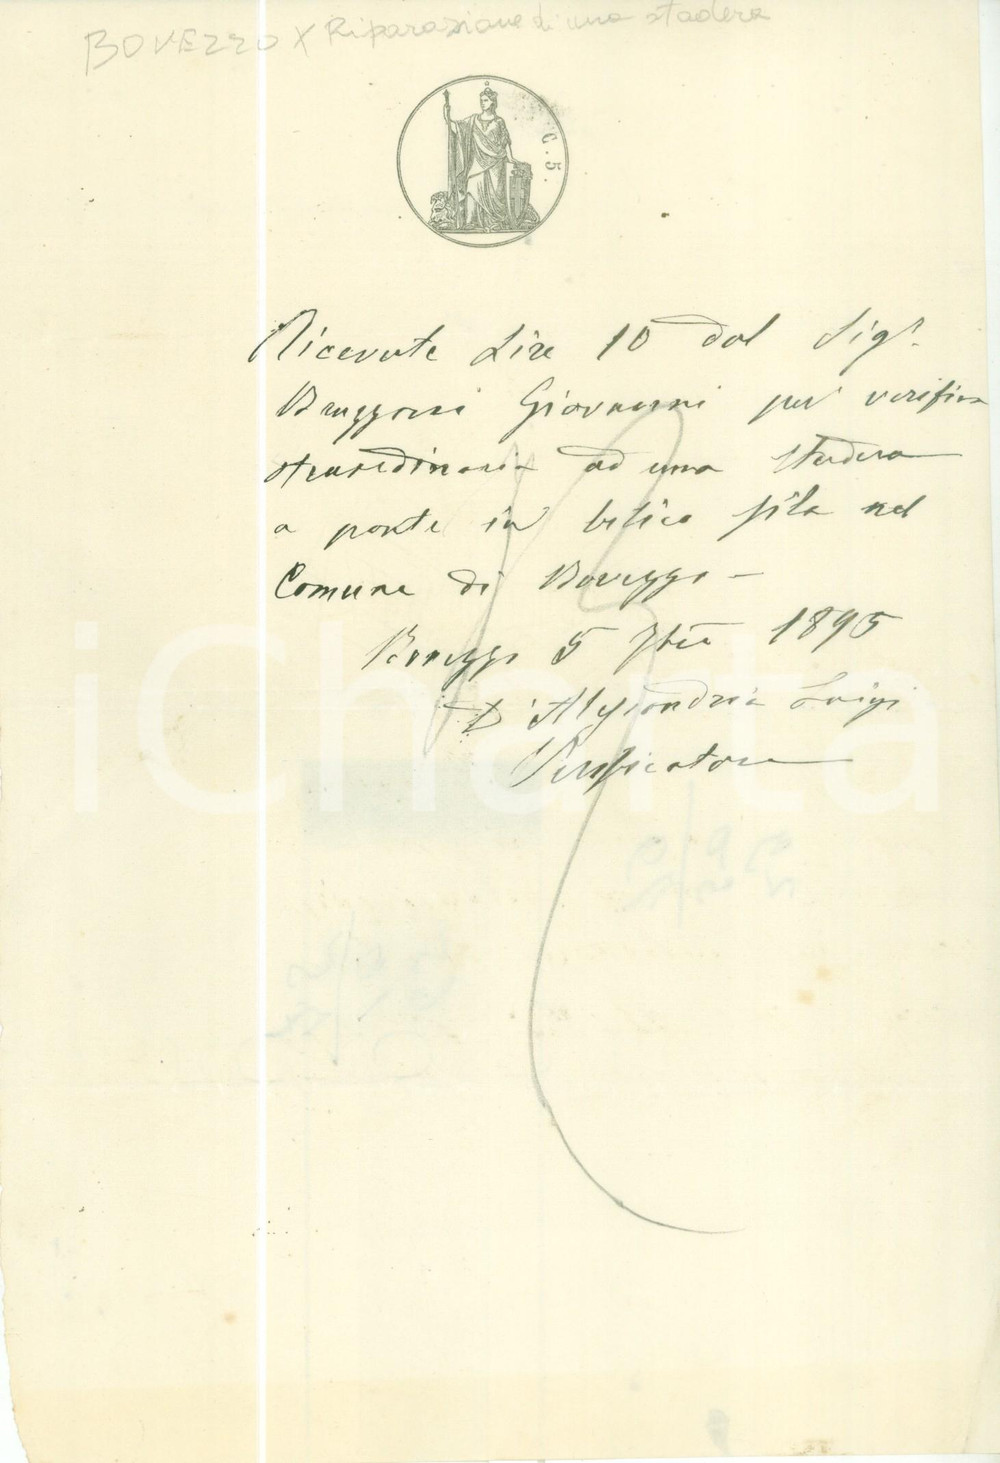 BOVEZZO x Riparazione di una stadera
C. 5.
Ricevute Lire 10 dal Sigr.
Giovanni per verifica
straordinaria ad una stadera
a ponte in bilico sita nel
Comune di Bovezzo –
Bovezzo 5 1895
D'Alessandria Luigi
Verificatore
iCharta